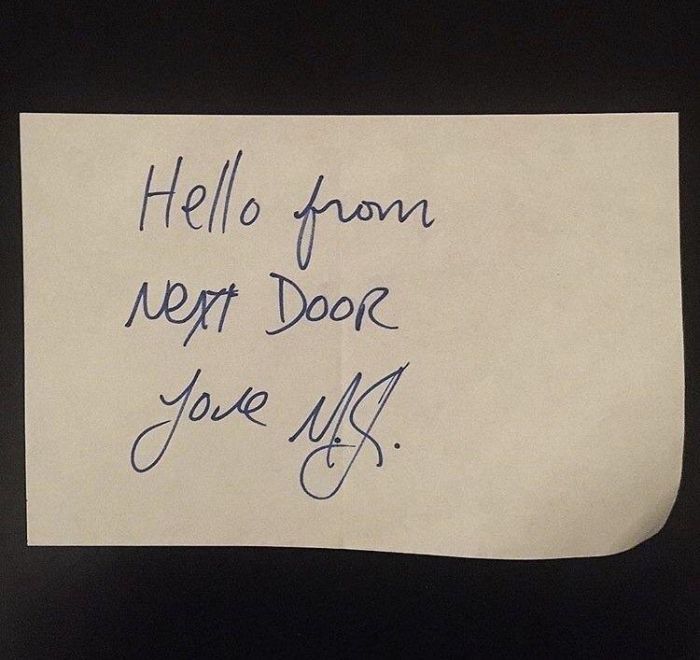 Hello from
Next Door
Love M.J.